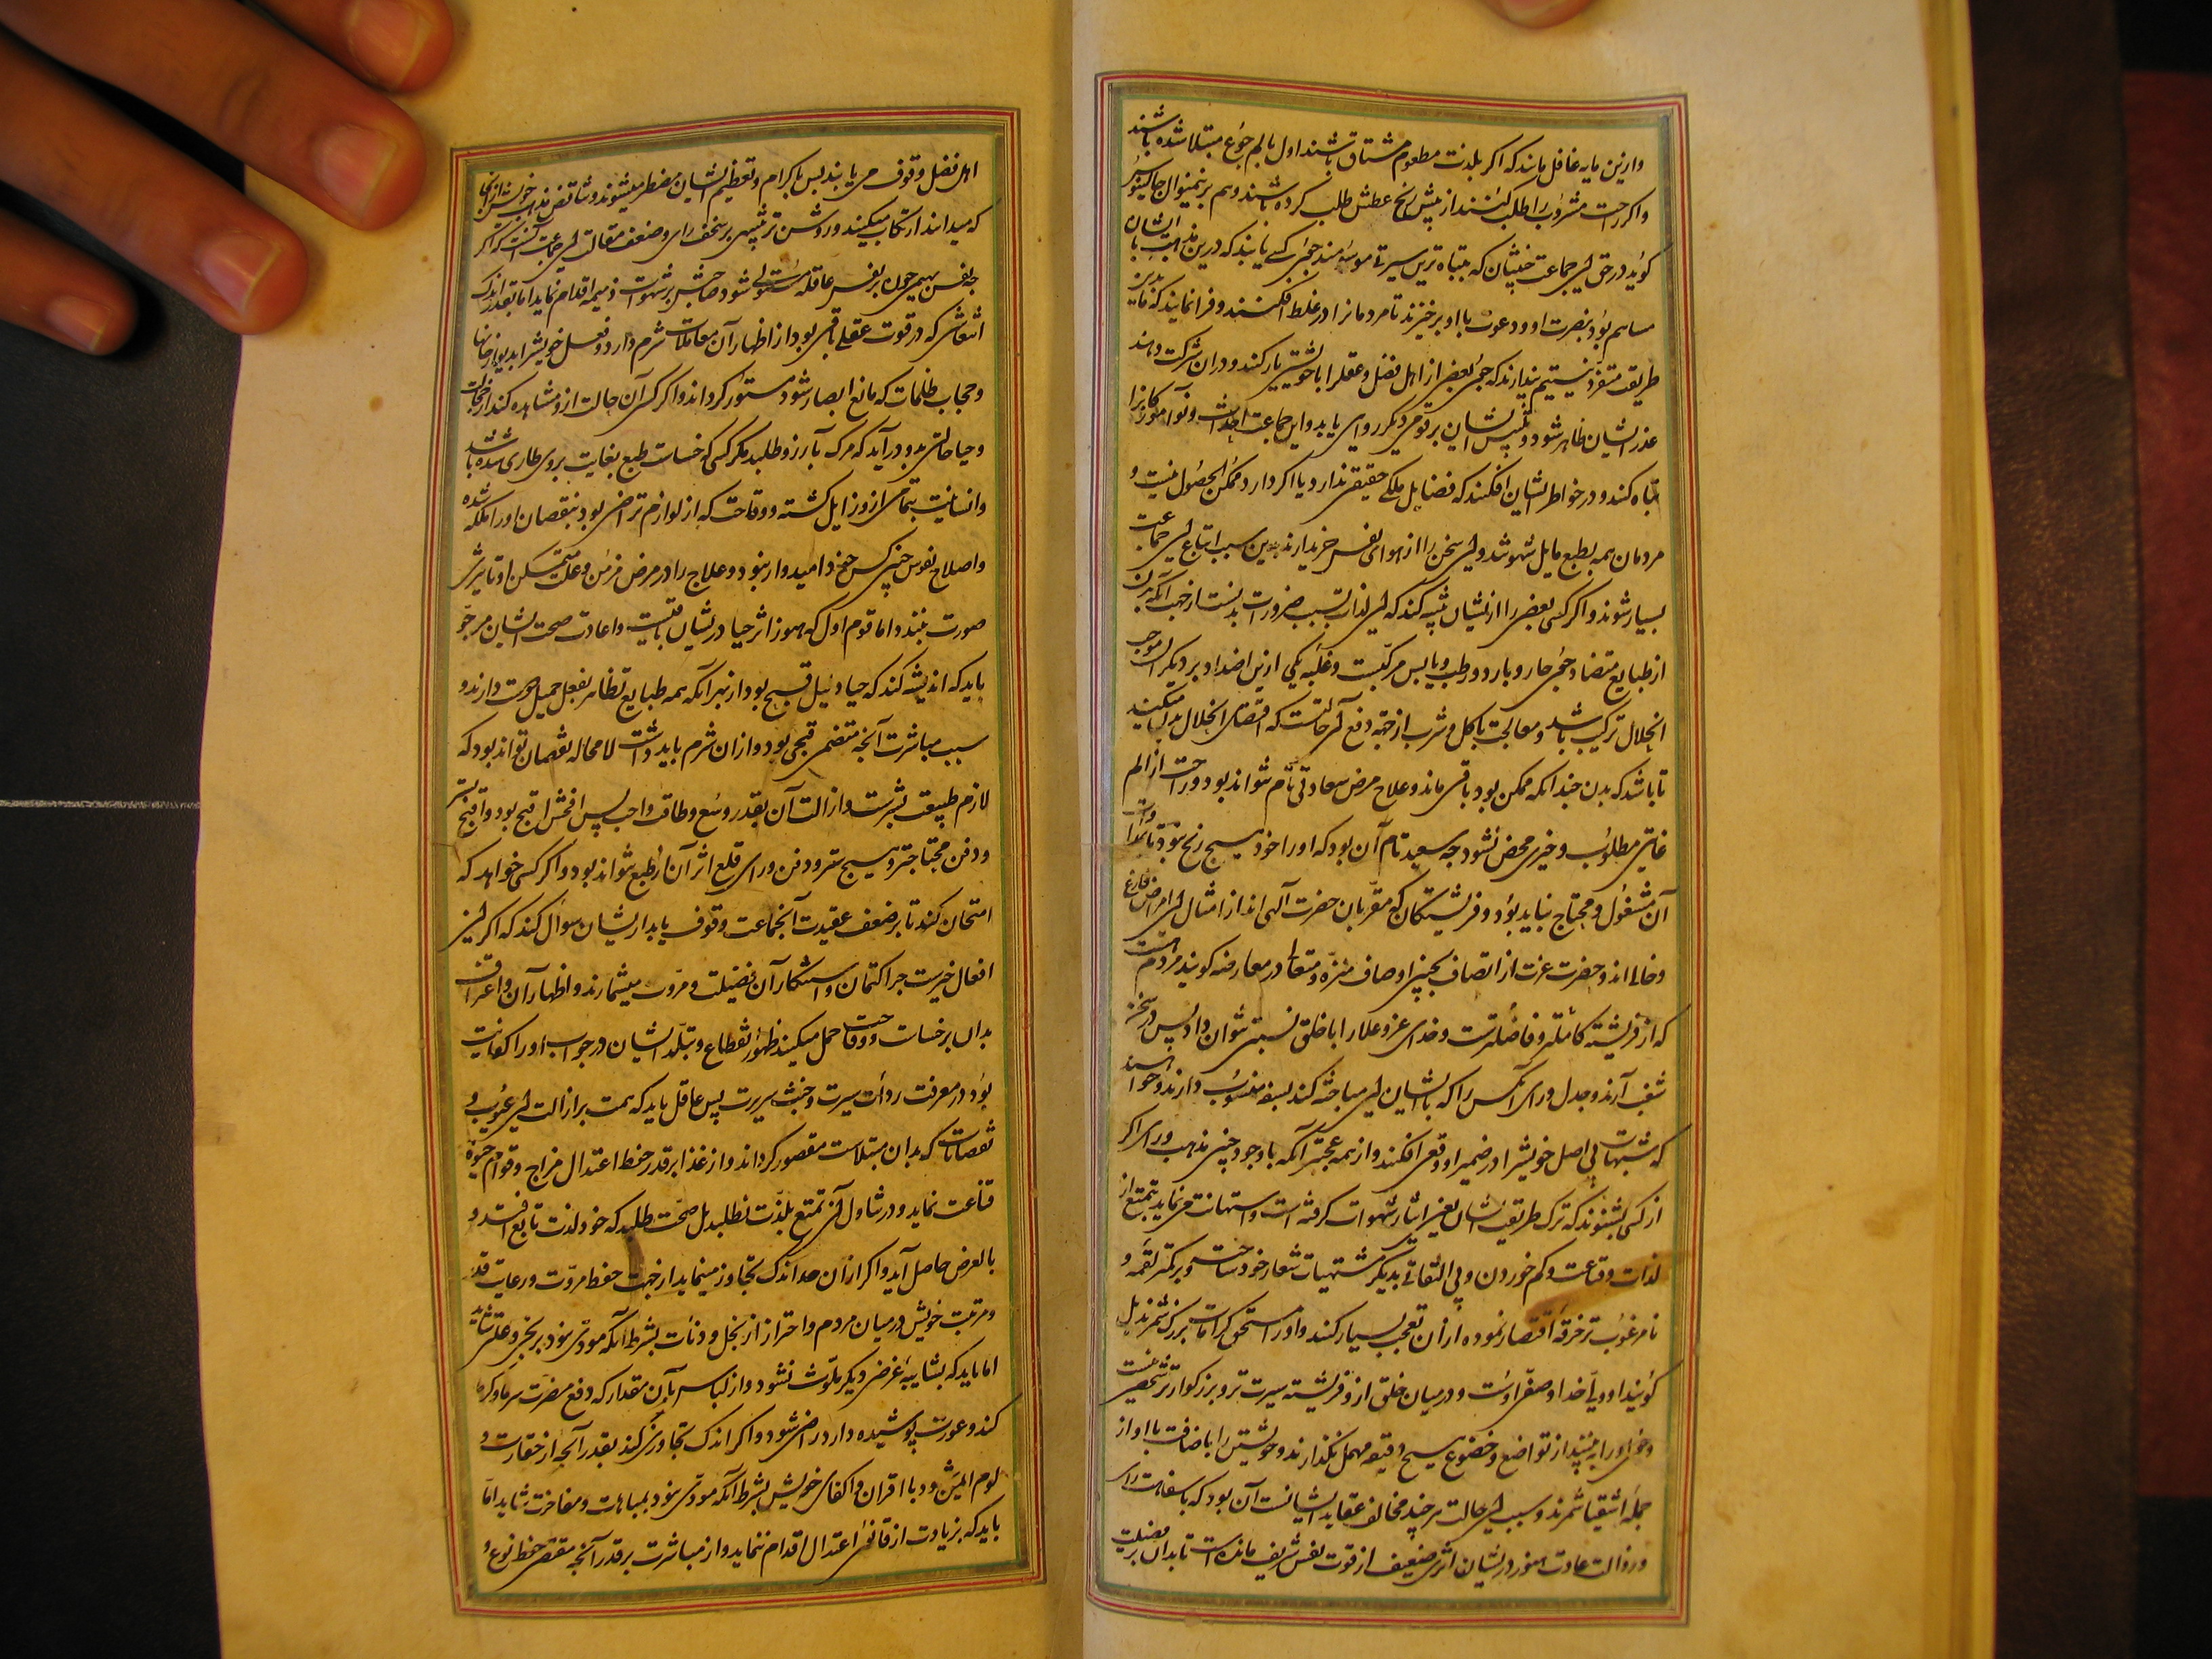 وازین مایه غافل مانند که اکر بلذت مطعوم مشتاق باشند اول بالم جوع مبتلا شده باشند
واکر راحت مشروب را طلب کنند از پیش رنج عطش طلب کرده باشند و هم برین منوال جالینوس
کوید در حق این جماعت خبیثان که بتباه ترین سیرتی موسوم اند چون کسی یابند که درین مذهب با ایشان
مساهم بود بنصرت او و دعوت با او برخیزند تا مردمانرا در غلط افکنند و فرا نمایند که ما بدین
طریقت متفرد نیستیم پندارند که چون بعضی از اهل فضل و عقل را با خویشتن یار کنند و در ان شرکت دهند
عذر ایشان ظاهر شود و تلبیس ایشان بر قومی دیکر روای یابد و این جماعت احداث و نوآموزکانرا
تباه کنند و در خواطر ایشان افکنند که فضایل ملکی حقیقتی ندارد یا اکر دارد ممکن الحصول نیست و
مردمان همه بطبع مایل شهوت و این سخن را از هوای نفس خریدارند بدین سبب اتباع این جماعت
بسیار شوند و اکر کسی بعضی را از ایشان تنبیه کند که این لذات بسبب ضرورات بدنست از جهت آنکه بدن
از طبایع متضاد چون حار و بارد و رطب و یابس مرکبست و غلبه یکی ازین اضداد بر دیکران موجب
انحلال ترکیب باشد و معالجت باکل و شرب از جهة دفع آن حالتست که اقتضای انحلال بدن میکند
تا باشد که بدن چندانکه ممکن بود باقی ماند و علاج مرض سعادتی تام نتواند بود و راحت از الم
غایتی مطلوب و خیری محض نشود چه سعید تام آن بود که او را خود هیچ رنج نبود تا بمداوات
آن مشغول و محتاج نباید بود و فریشتکان که مقربان حضرت آلهی اند از امثال این امراض فارغ
و خالی اند و حضرت عزت از اتصاف بچنین اوصاف منزه و متعالی در معارضه کویند مردم هست
که از فریشته کاملتر و فاضلترست و خدای عز و علا را با خلق نسبت نتوان داد پس در سخن
شغب آرند و جدل و رای آنکس را که با ایشان این مباحثه کند بسفه منسوب دارند و خواهند
که شبهات بی اصل خویش را در ضمیر او وقعی افکنند و از همه عجبتر آنکه با وجود چنین مذهب و رای اکر
از کسی بشنوند که ترک طریقت ایشان یعنی ایثار شهوات کرفته است و استهانت می نماید بتمتع از
لذات و قناعت و کم خوردن و بی التفاتی بدیکر مشتهیات شعار خود ساخته و بر کمتر لقمه و
نامرغوب تر خرقه اقتصار نموده ازان تعجب بسیار کنند و او را مستحق کرامات بزرک شمرند بل
کویند او ولی خدا و صفی اوست و در میان خلق ازو فریشته سیرت تر و بزرکوارتر شخصی نیست
و چون او را بینند از تواضع و خضوع هیچ دقیقه مهمل نکذارند و خویشتن را باضافت با او از
جمله اشقیا شمرند و سبب این حالت هر چند مخالف عقاید ایشانست آن بود که با سفاهت رای
و رذالت عادت هنوز در ایشان اثری ضعیف از قوت نفس شریف مانده است تا بدان بر فضیلت
اهل فضل وقوف می یابند پس باکرام و تعظیم ایشان مضطر میشوند و تناقض مذهب خویش را از آنجا
که میدانند ارتکاب میکنند و روشن تر تنبیهی بر سخف رای و ضعف مقالت این جماعت آنست که اکر
چه نفس بهیمی چون بر نفس عاقله مستولی شود صاحبش بر شهوات ذمیمه اقدام نماید اما بقدر اندک
انتعاشی که در قوت عقلی باقی بود از اظهار آن معاملات شرم دارد و فعل خویش را بدیوار خانها
و حجاب ظلمات که مانع ابصار شود مستور کرداند و اکر کسی آن حالت ازو مشاهده کند از خجالت
و حیا حالتی بدو درآید که مرک بآرزو طلبد مکر کسی که خساست طبع بغایت بروی طاری شده باشد
و انسانیت بتمامی ازو زایل کشته و وقاحت که از لوازم تراضی بود بنقصان او را ملکه شده
و اصلاح نفوس چنین کس خود امیدوار نبود و علاج را در مرض مزمن و علت متمکن او تاثیری
صورت نبندد اما قوم اول که هنوز اثر حیا در ایشان باقیست و اعادت صحت ایشان مرجو
باید که اندیشه کنند که حیا دلیل قبیح بود از بهر آنکه همه طبایع تظاهر بفعل جمیل دوست دارند و
سبب مباشرت آنچه متضمن قبحی بود و ازان شرم باید داشت لا محاله نقصان تواند بود که
لازم طبیعت بشریست و ازالت آن بقدر وسع و طاقت واجب پس افحش اقبح بود و اقبح بستر
و دفن محتاجتر و هیچ ستر و دفن ورای قلع اثر آن از طبع نتواند بود و اکر کسی خواهد که
امتحان کند تا بر ضعف عقیدت آنجماعت وقوف یابد از ایشان سوال کند که اکر این
افعال خیرست چرا کتمان و استنکار آن فضیلت و مروت میشمارند و اظهار آن و اعتراف
بدان بر خساست و وقاحت حمل میکنند ظهور انقطاع و تبلد ایشان در جواب او را کفایت
بود در معرفت رداءت سیرت و خبث سریرت پس عاقل باید که همت بر ازالت این عیوب و
نقصانات که بدان مبتلاست مقصور کرداند و از غذا بر قدر حفظ اعتدال مزاج و قوام حیوة
قناعت نماید و در تناول آن تمتع بلذت نطلبد بل صحت طلبد که خود لذت تابع افتد و
بالعرض حاصل آید و اکر ازان حد اندک تجاوز مینماید از جهت حفظ مروت و رعایت قدر
و مرتبت خویش در میان مردم و احتراز از بخل و دناءت بشرط آنکه مودی نبود برنجی و علتی شاید
اما باید که بشایبه غرضی دیکر ملوث نشود و از لباس بآن مقدار که دفع مضرت سرما و کرما
کند و عورت پوشیده دارد راضی شود و اکر اندک تجاوز کند بقدر آنچه از حقارت و
لوم ایمن شود با اقران و اکفای خویش بشرط آنکه مودی نبود بمباهات و مفاخرت شاید اما
باید که بزیادت از قانون اعتدال اقدام ننماید و از مباشرت بر قدر آنچه مقتضی حفظ نوع و